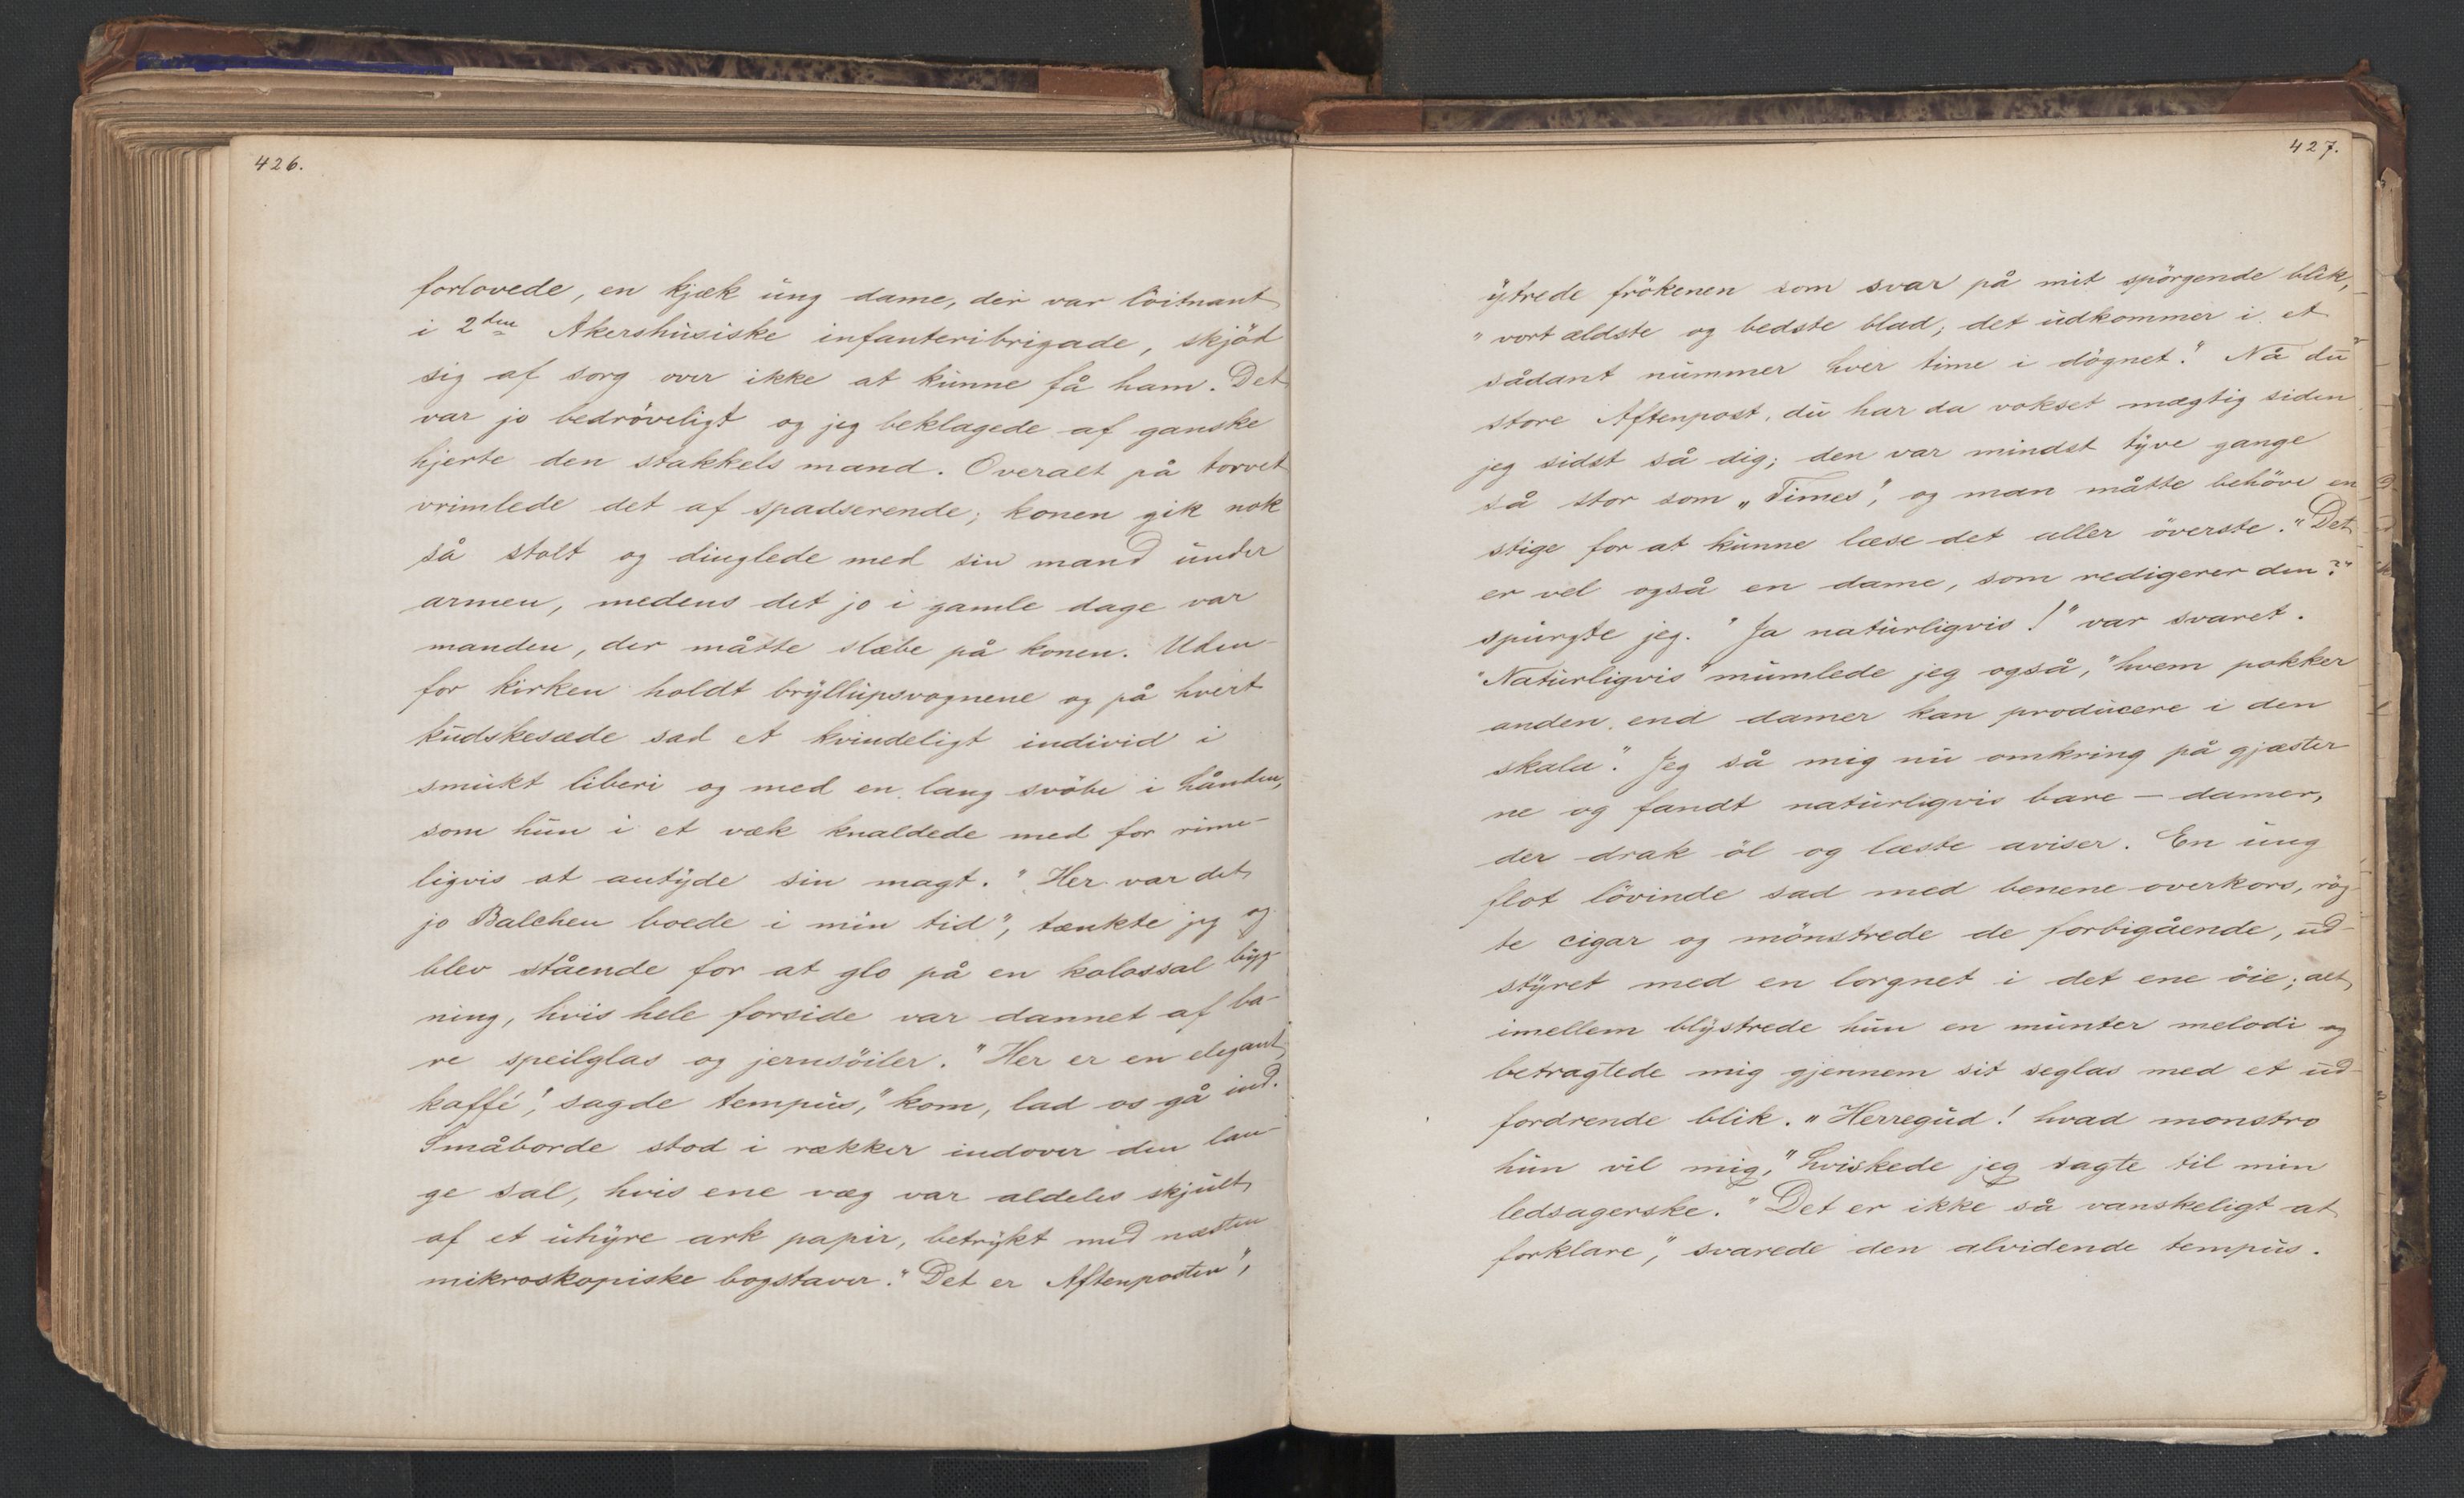 426.
forlovede, en kjæk ung dame, der var löitnant
i 2den Akershusiske infanteribrigade, skjöd
sig af sorg over ikke at kunne få ham. Det
var jo bedröveligt og jeg beklagede af ganske
hjerte den stakkels mand. Overalt på torvet
vrimlede det af spadserende; konen gik nok
så stolt og dinglede med sin mand under
armen, medens det jo i gamle dage var
manden, der måtte slæbe på konen. Uden-
for kirken holdt bryllupsvognene og på hvert
kudskesæde sad et kvindeligt individ i
smukt liberi og med en lang svöbe i hånden,
som hun i et væk knaldede med for rime-
ligvis at antyde sin magt. "Her var det
jo Balchen boede i min tid", tænkte jeg og
blev stående for at glo på en kolossal byg-
ning, hvis hele forside var dannet af ba-
re speilglas og jernsöiler. "Her er en elegant
kaffé", sagde tempus, "kom, lad os gå ind.
Småborde stod i rækker indover den lan-
ge sal, hvis ene væg var aldeles skjult
af et uhyre ark papir, betrykt med næsten
mikroskopiske bogstaver. "Det er Aftenposten",
427.
ytrede frökenen som svar på mit spörgende blik,
"vort ældste og bedste blad; det udkommer i et
sådant nummer hver time i dögnet." Nå du
store Aftenpost, du har da vokset mægtig siden
jeg sidst så dig; den var mindst tyve gange
så stor som „Times", og man måtte behöve en
stige for at kunne læse det aller överste. "Det
er vel også en dame, som redigerer den?"
spurgte jeg. "Ja naturligvis!" var svaret.
"Naturligvis" mumlede jeg også, "hvem pokker
anden end damer kan producere i den
skala". Jeg så mig nu omkring på gjæster
ne og fandt naturligvis bare – damer,
der drak öl og læste aviser. En ung
flot lövinde sad med benene overkors, rög-
te cigar og mönstrede de forbigående, ud-
styret med en lorgnet i det ene öie; alt
imellem blystrede hun en munter melodi og
betragtede mig gjennem sit seglas med et ud-
fordrende blik. "Herregud! hvad monstro
hun vil mig," hviskede jeg sagte til min
ledsagerske. "Det er ikke så vanskeligt at
forklare", svarede den alvidende tempus.